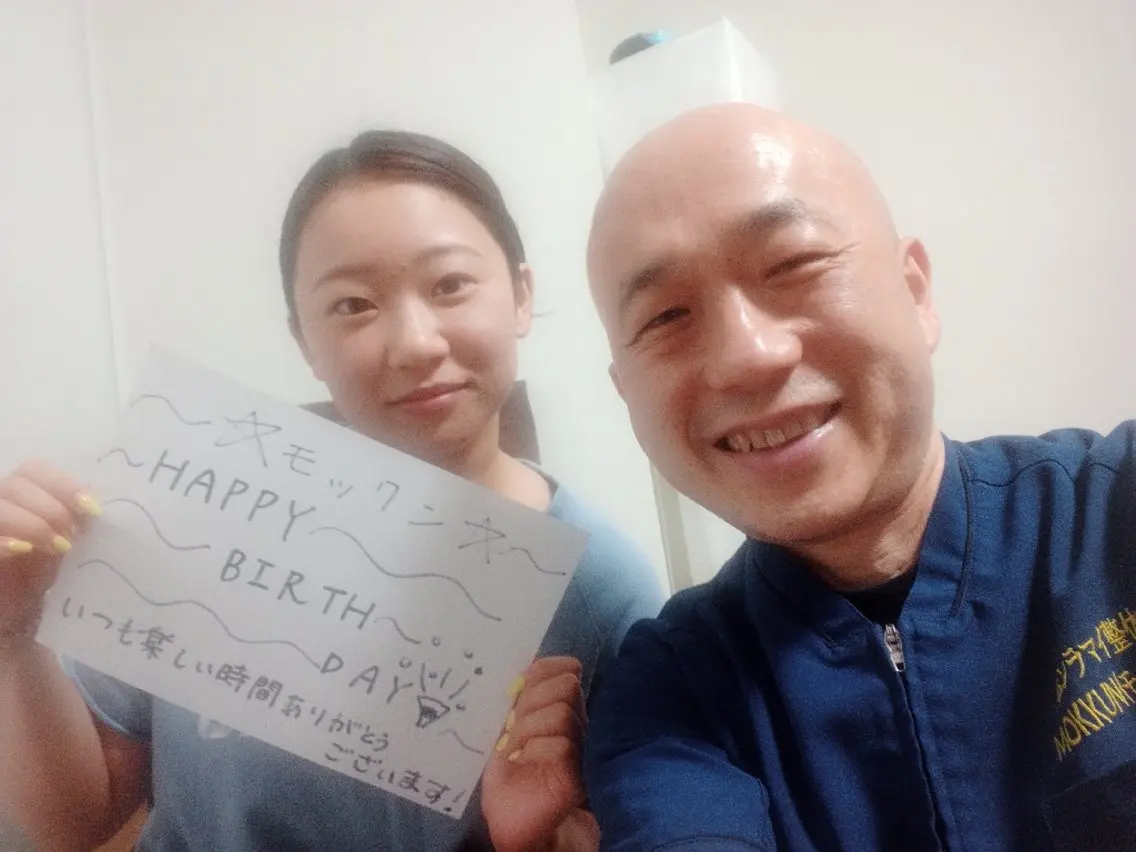 ～☆モックン☆～
～HAPPY～
～BIRTH～
～DAY
いつも楽しい時間ありがとう
ございます!
マイ整体
MOKKUN